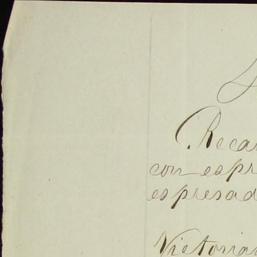 Recau
con espr
espresad
Victoria